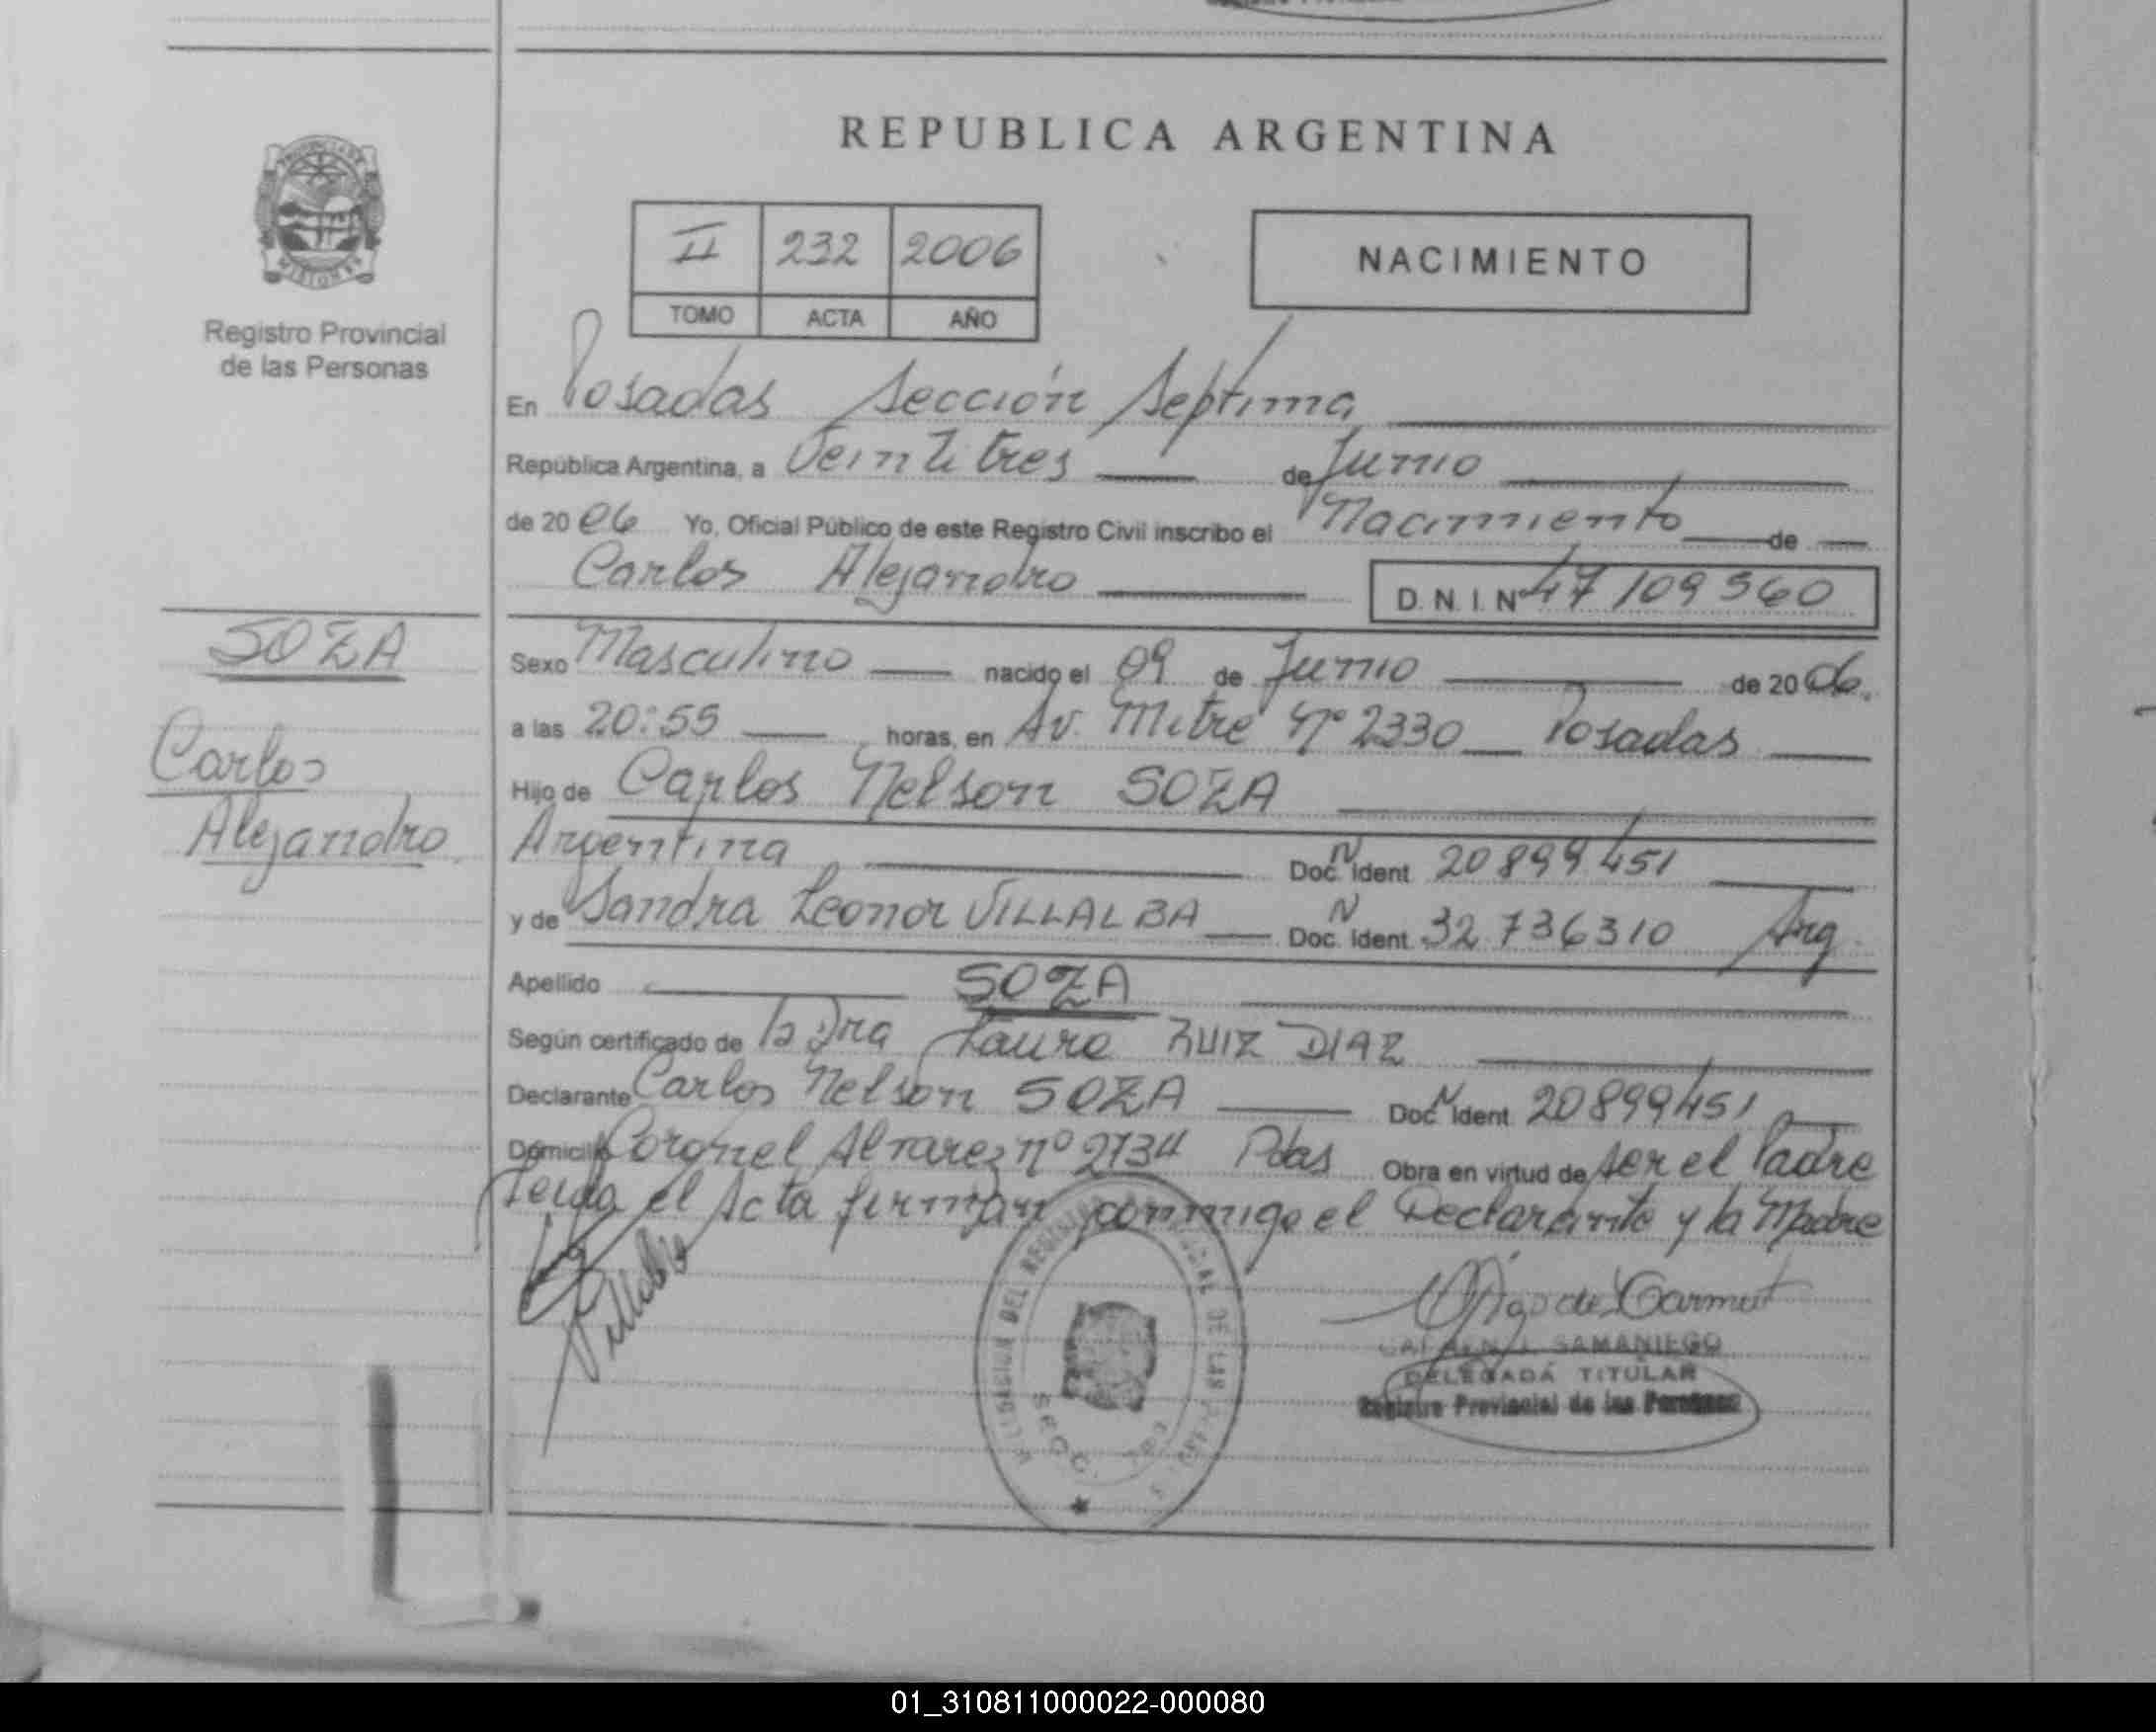 REPUBLICA ARGENTINA
II 232 2006
TOMO ACTA AÑO
NACIMIENTO
Registro Provincial
de las Personas
En Posadas Sección Septima
República Argentina, a Veintitres de Junio
de 2006 Yo, Oficial Público de este Registro Civil inscribo el Nacimiento de
Carlos Alejandro D.N.I. Nº 47109560
SOZA
Carlos
Alejandro
Sexo Masculino nacido el 09 de Junio de 2006
a las 20:55 horas, en Av. Mitre Nº 2330 Posadas
Hijo de Carlos Nelson SOZA
Argentina Doc. N Ident 20899451
y de Sandra Leonor VILLALBA Doc. N Ident. 32736310 Arg.
Apellido SOZA
Según certificado de la Dra Laura RUIZ DIAZ
Declarante Carlos Nelson SOZA Doc. N Ident 20899451
Domicilio Coronel Alvarez nº 2734 Pdas Obra en virtud de ser el Padre
Leida el Acta firman conmigo el Declarante y la Madre
Villalba
SAMANIEGO
DELEGADA TITULAR
Registro Provincial de las Personas
DELEGACION DEL REGISTRO PROVINCIAL DE LAS
01_310811000022-000080